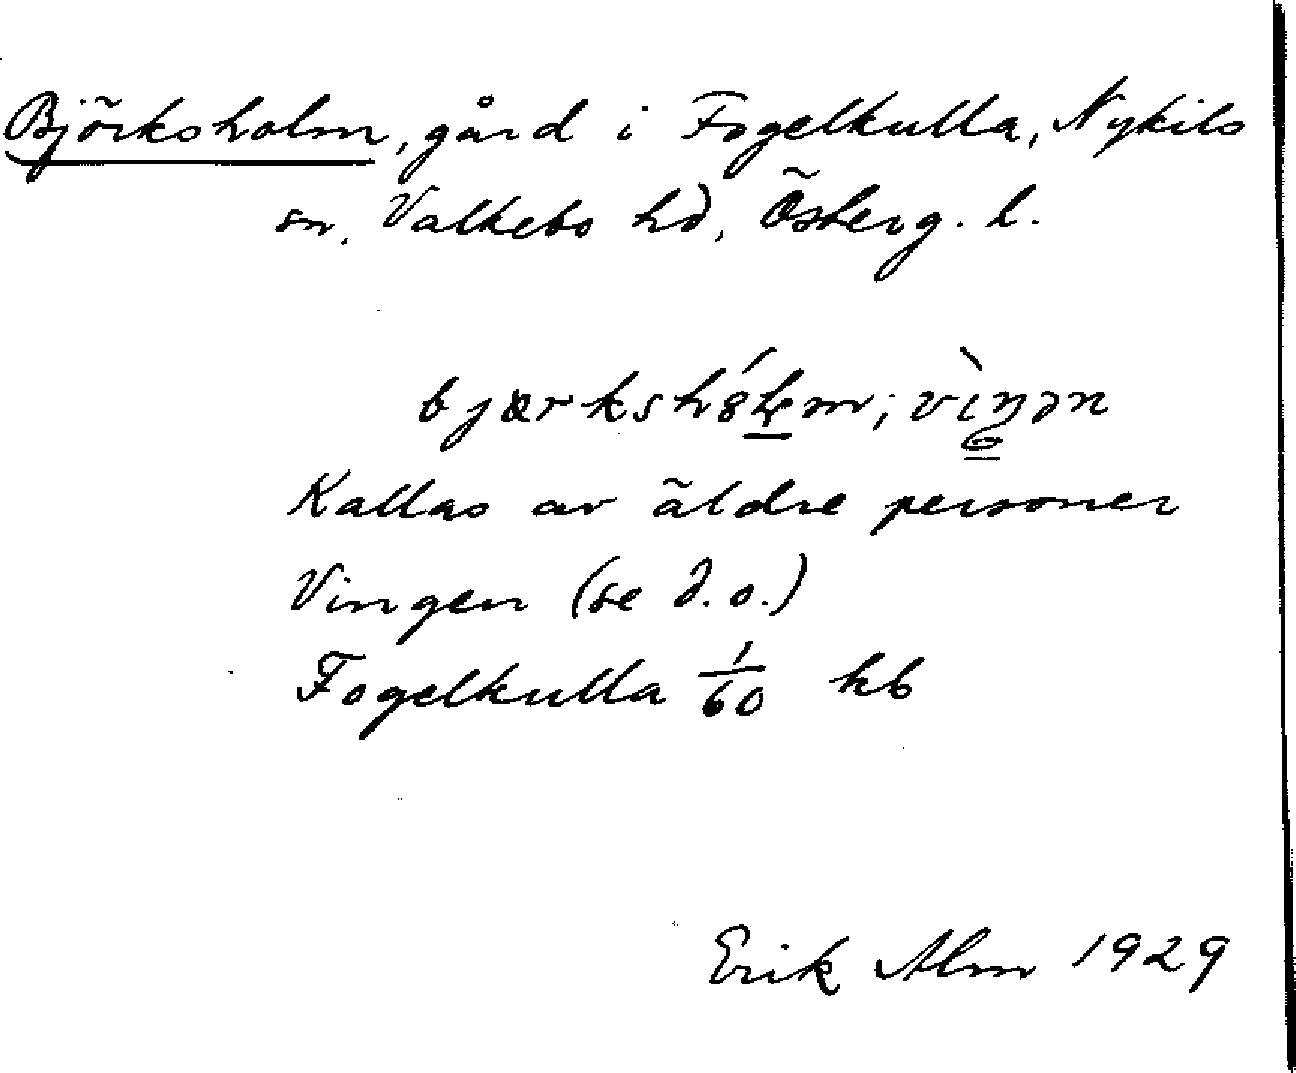 Björksholm, gård i Fogelkulla, Nykils
sn, Valkebo hd, Österg. l.
bjærkshól̲m; vìŋ̲ən
Kallas av äldre personer
Vingen (se d.o.)
Fogelkulla 1/60 kb
Erik Alm 1929